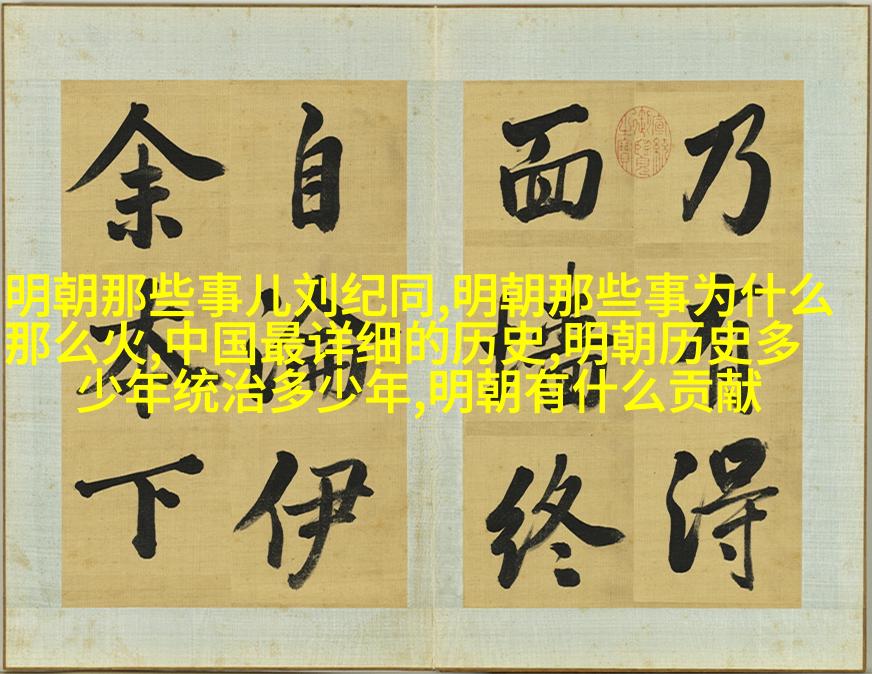 明朝那些事儿刘纪同,明朝那些事为什么
那么火,中国最详细的历史,明朝历史多
少年统治多少年,明朝有什么贡献
乃有得
面墻終
自論伊
余本下
宣統御覽之寶